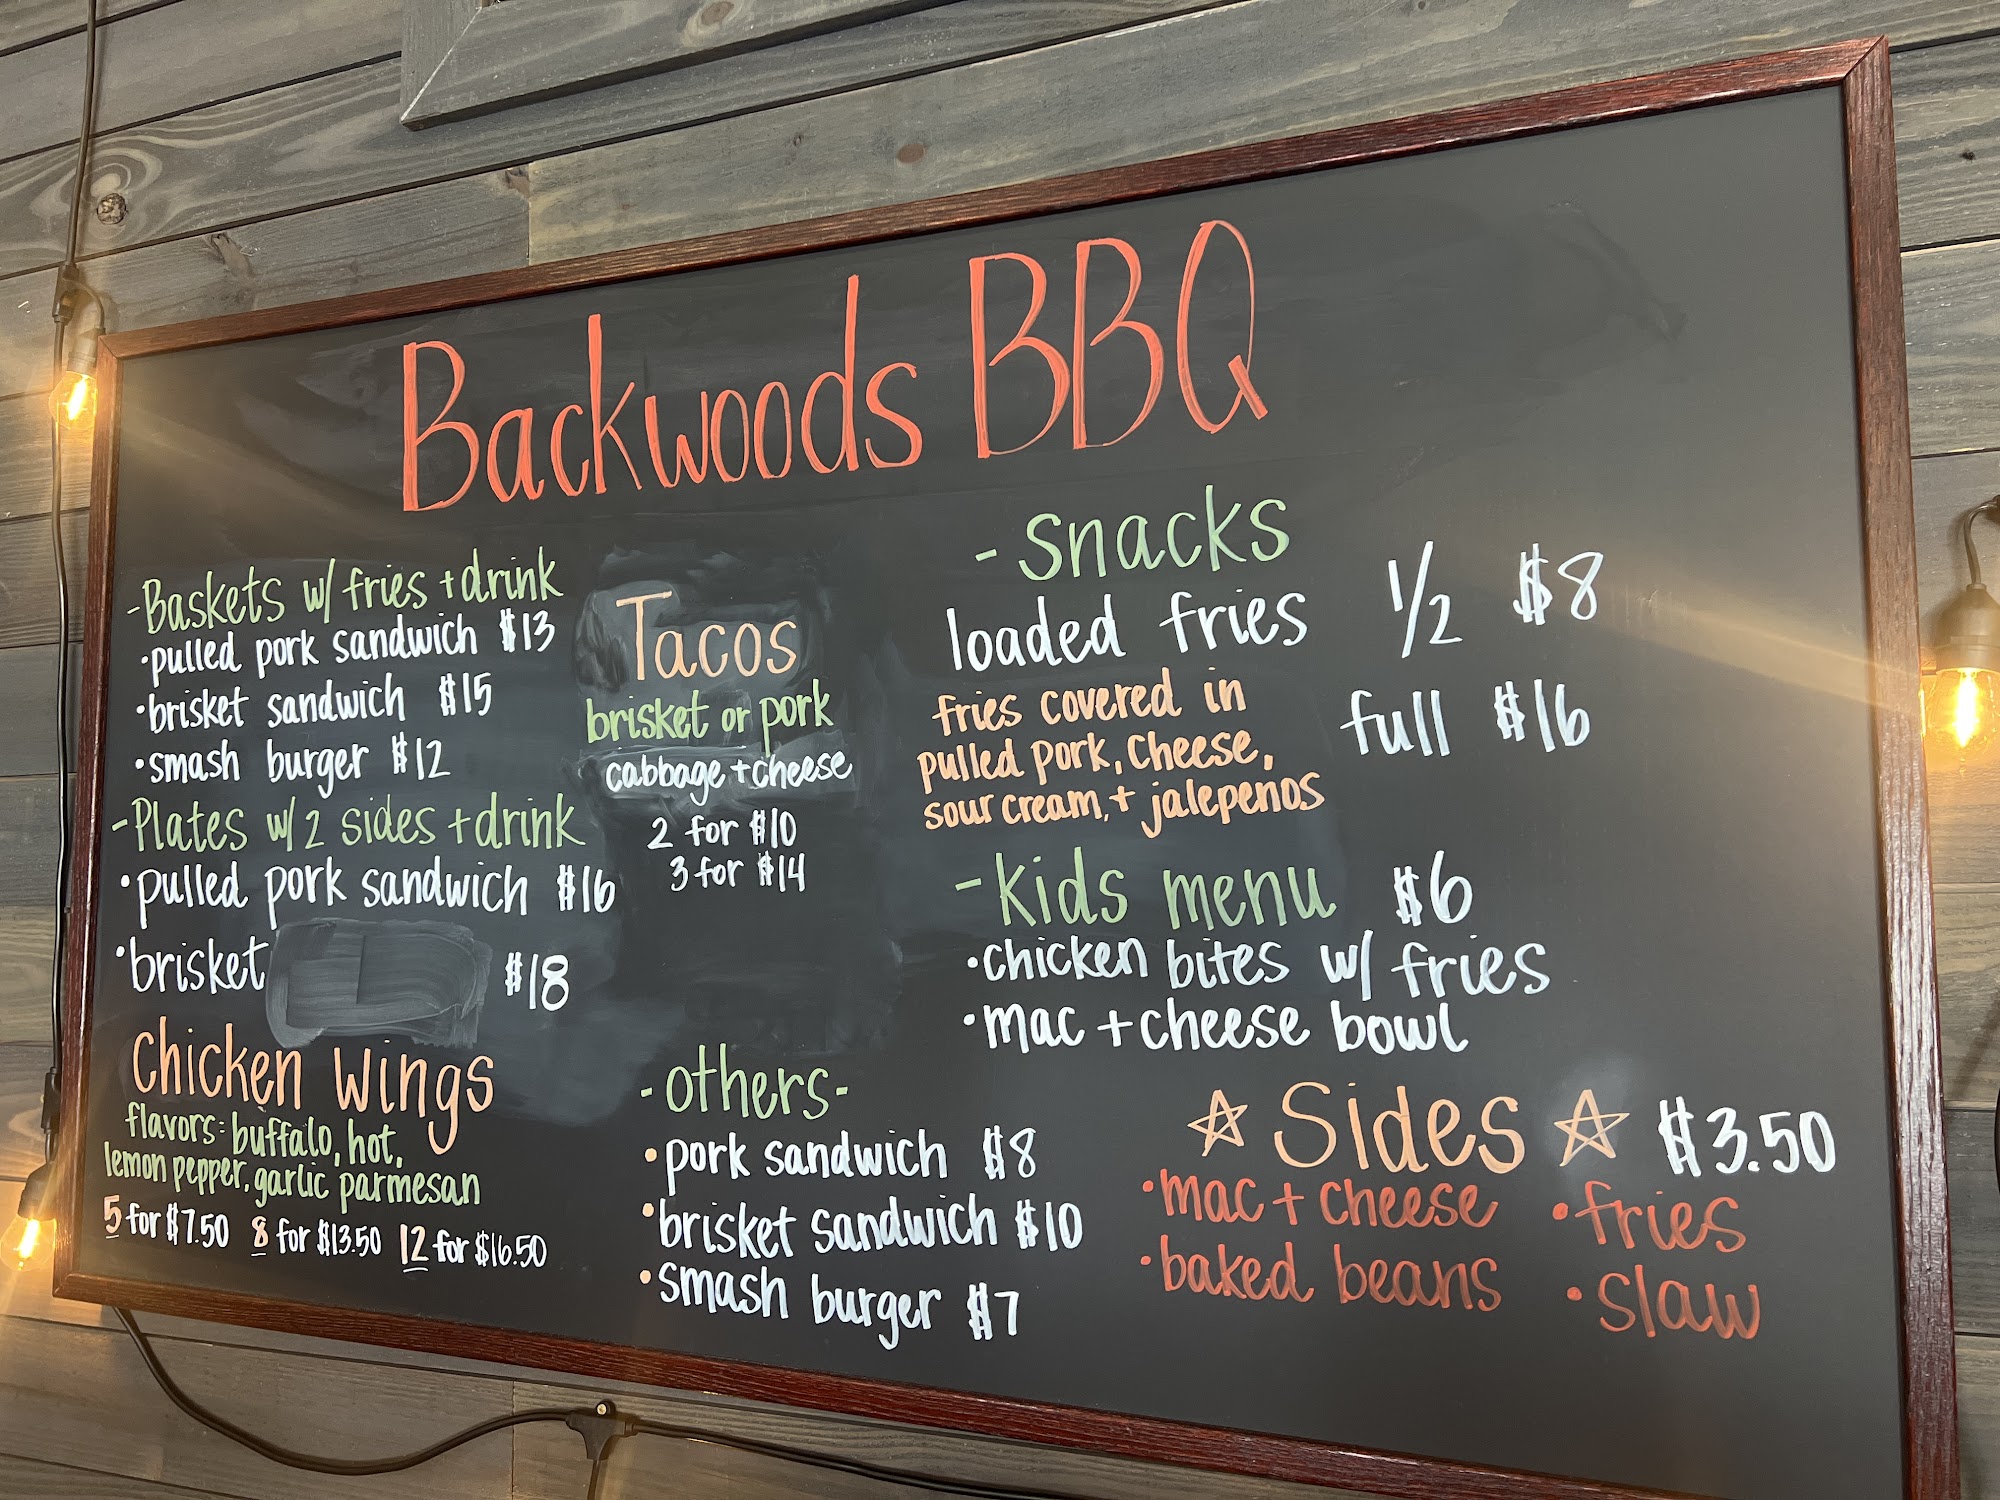 Backwoods BBQ
-Baskets w/ fries + drink
•pulled pork sandwich $13
•brisket sandwich $15
•smash burger $12
-Plates w/ 2 sides + drink
•pulled pork sandwich $16
•brisket $18
Chicken Wings
flavors: buffalo, hot,
lemon pepper, garlic parmesan
5 for $7.50 8 for $13.50 12 for $16.50
Tacos
brisket or pork
cabbage + cheese
2 for $10
3 for $14
-others-
•pork sandwich $8
•brisket sandwich $10
•smash burger $7
-Snacks
loaded fries 1/2 $8
full $16
fries covered in
pulled pork, cheese,
sour cream, + jalepenos
-Kids menu $6
•chicken bites w/ fries
•mac + cheese bowl
☆ Sides ☆ $3.50
•mac + cheese •fries
•baked beans •slaw